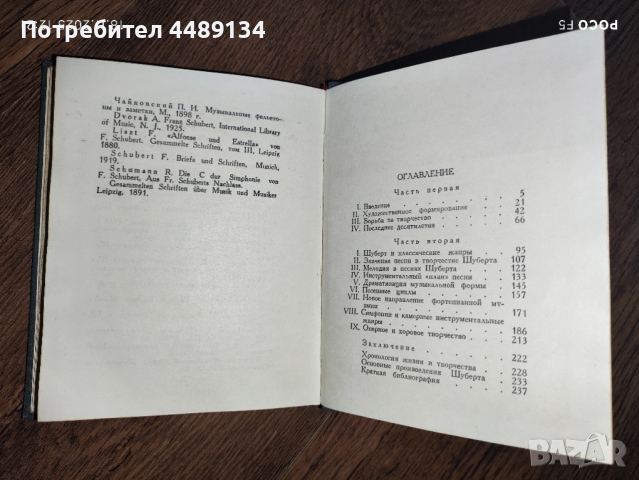 Потребител 4489134
POCO F5
Чайковский П. И. Музыкальные фельето-
ны и заметки, М., 1898 г.
Dvorak A. Franz Schubert, International Library
of Music, N. J., 1925.
Liszt F. «Alfonso und Estrella» von
F. Schubert. Gesammelte Schriften, том III, Leipzig
1880.
Schubert F. Briefe und Schriften, Munich,
1919.
Schumann R. Die C dur Simphonie von
F. Schubert, Aus Fr. Schuberts Nachlass.
Gesammelten Schriften über Musik und Musiker
Leipzig, 1891.
ОГЛАВЛЕНИЕ
Часть первая 5
I. Введение 21
II. Художественное формирование 42
III. Борьба за творчество 66
IV. Последнее десятилетие
Часть вторая
I. Шуберт и классические жанры 95
II. Значение песни в творчестве Шуберта 107
III. Мелодия в песнях Шуберта 122
IV. Инструментальный «план» песни 133
V. Драматизация музыкальной формы 145
VI. Песенные циклы 157
VII. Новое направление фортепианной му-
зыки 171
VIII. Симфония и камерные инструментальные
жанры 186
IX. Оперное и хоровое творчество 213
Заключение 222
Хронология жизни и творчества 228
Основные произведения Шуберта 233
Краткая библиография 237
BAZAR